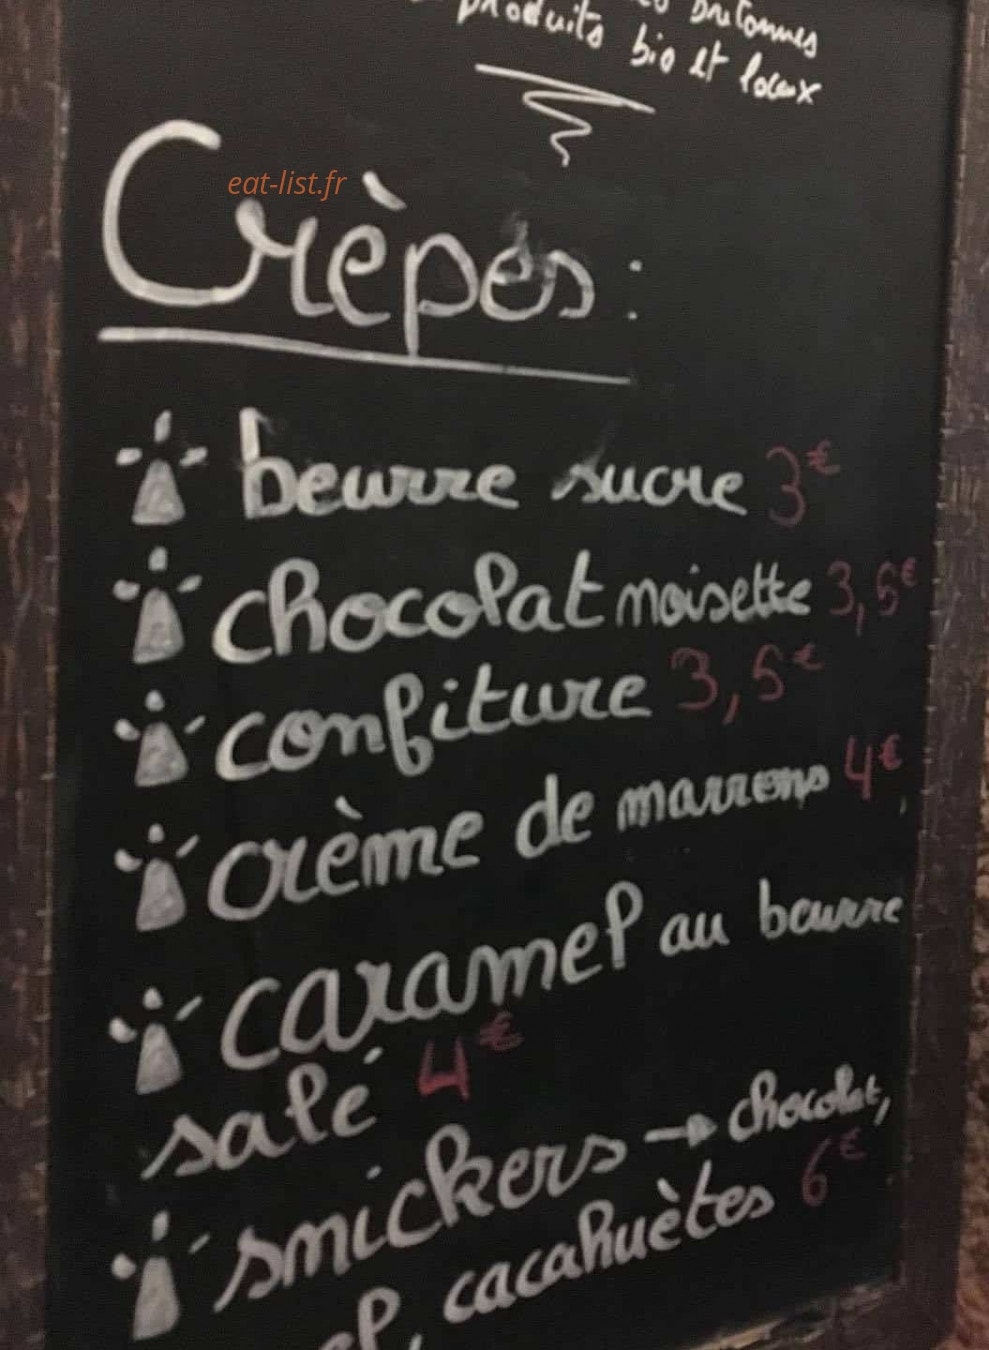 bretonnes
produits bio et locaux
eat-list.fr
Crèpes :
beurre sucre 3€
chocolat noisette 3,5€
confiture 3,5€
crème de marrons 4€
caramel au beurre
salé 4€
snickers → chocolat,
cacahuètes 6€